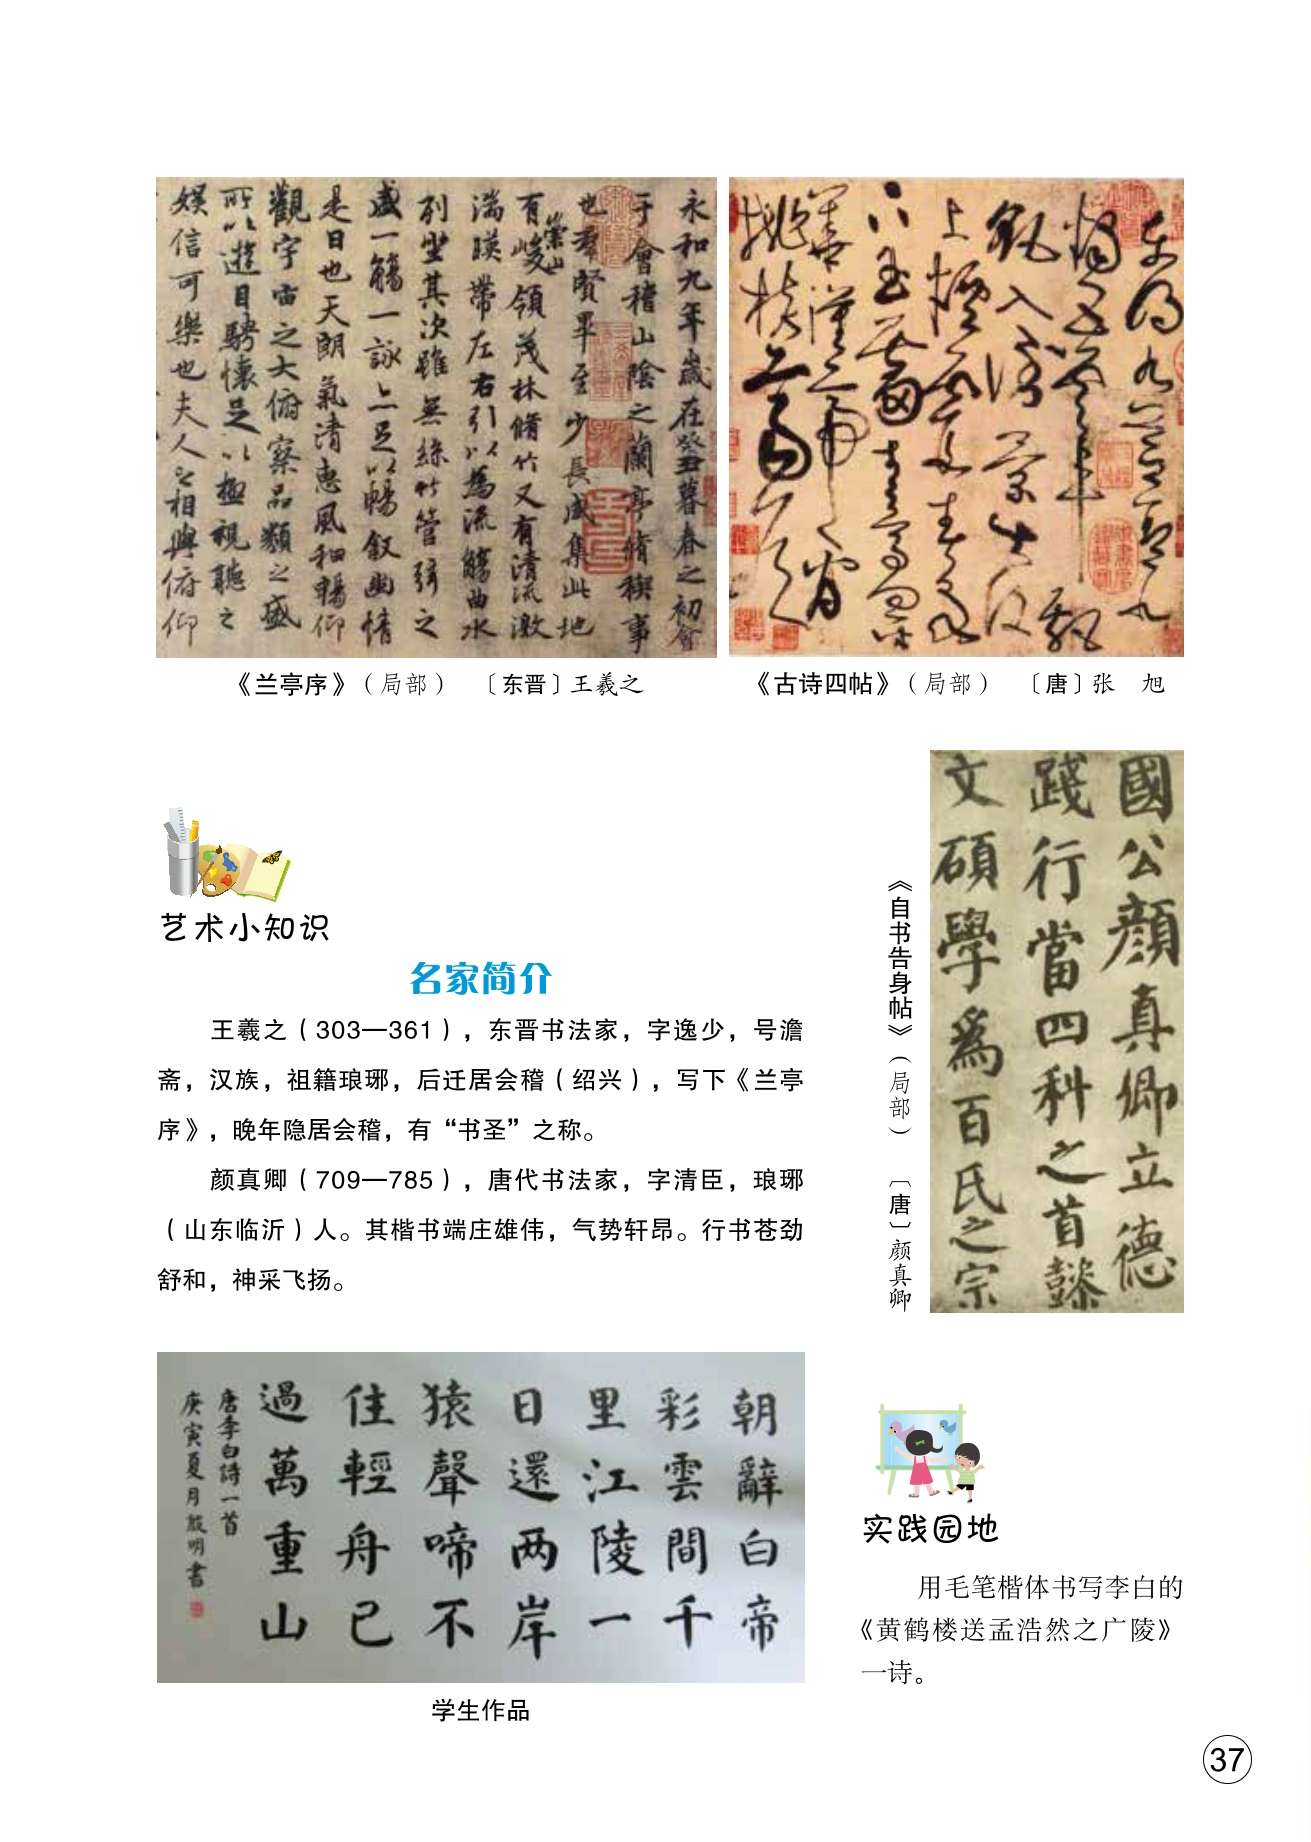 永和九年歲在癸丑暮春之初會
于會稽山陰之蘭亭脩稧事
也羣賢畢至少長咸集此地
有崇山峻領茂林脩竹又有清流激
湍暎帶左右引以為流觴曲水
列坐其次雖無絲竹管弦之
盛一觴一詠亦足以暢敘幽情
是日也天朗氣清惠風和暢仰
觀宇宙之大俯察品類之盛
所以遊目騁懷足以極視聽之
娛信可樂也夫人之相與俯仰
《兰亭序》（局部） 〔东晋〕王羲之
《古诗四帖》（局部） 〔唐〕张 旭
國公顏真卿立德
踐行當四科之首懿
文碩學為百氏之宗
《自书告身帖》（局部） 〔唐〕颜真卿
艺术小知识
名家简介
王羲之（303—361），东晋书法家，字逸少，号澹
斋，汉族，祖籍琅琊，后迁居会稽（绍兴），写下《兰亭
序》，晚年隐居会稽，有“书圣”之称。
颜真卿（709—785），唐代书法家，字清臣，琅琊
（山东临沂）人。其楷书端庄雄伟，气势轩昂。行书苍劲
舒和，神采飞扬。
朝辭白帝
彩雲間千
里江陵一
日還两岸
猿聲啼不
住輕舟已
過萬重山
唐李白詩一首
庚寅夏月明書
学生作品
实践园地
用毛笔楷体书写李白的
《黄鹤楼送孟浩然之广陵》
一诗。
37